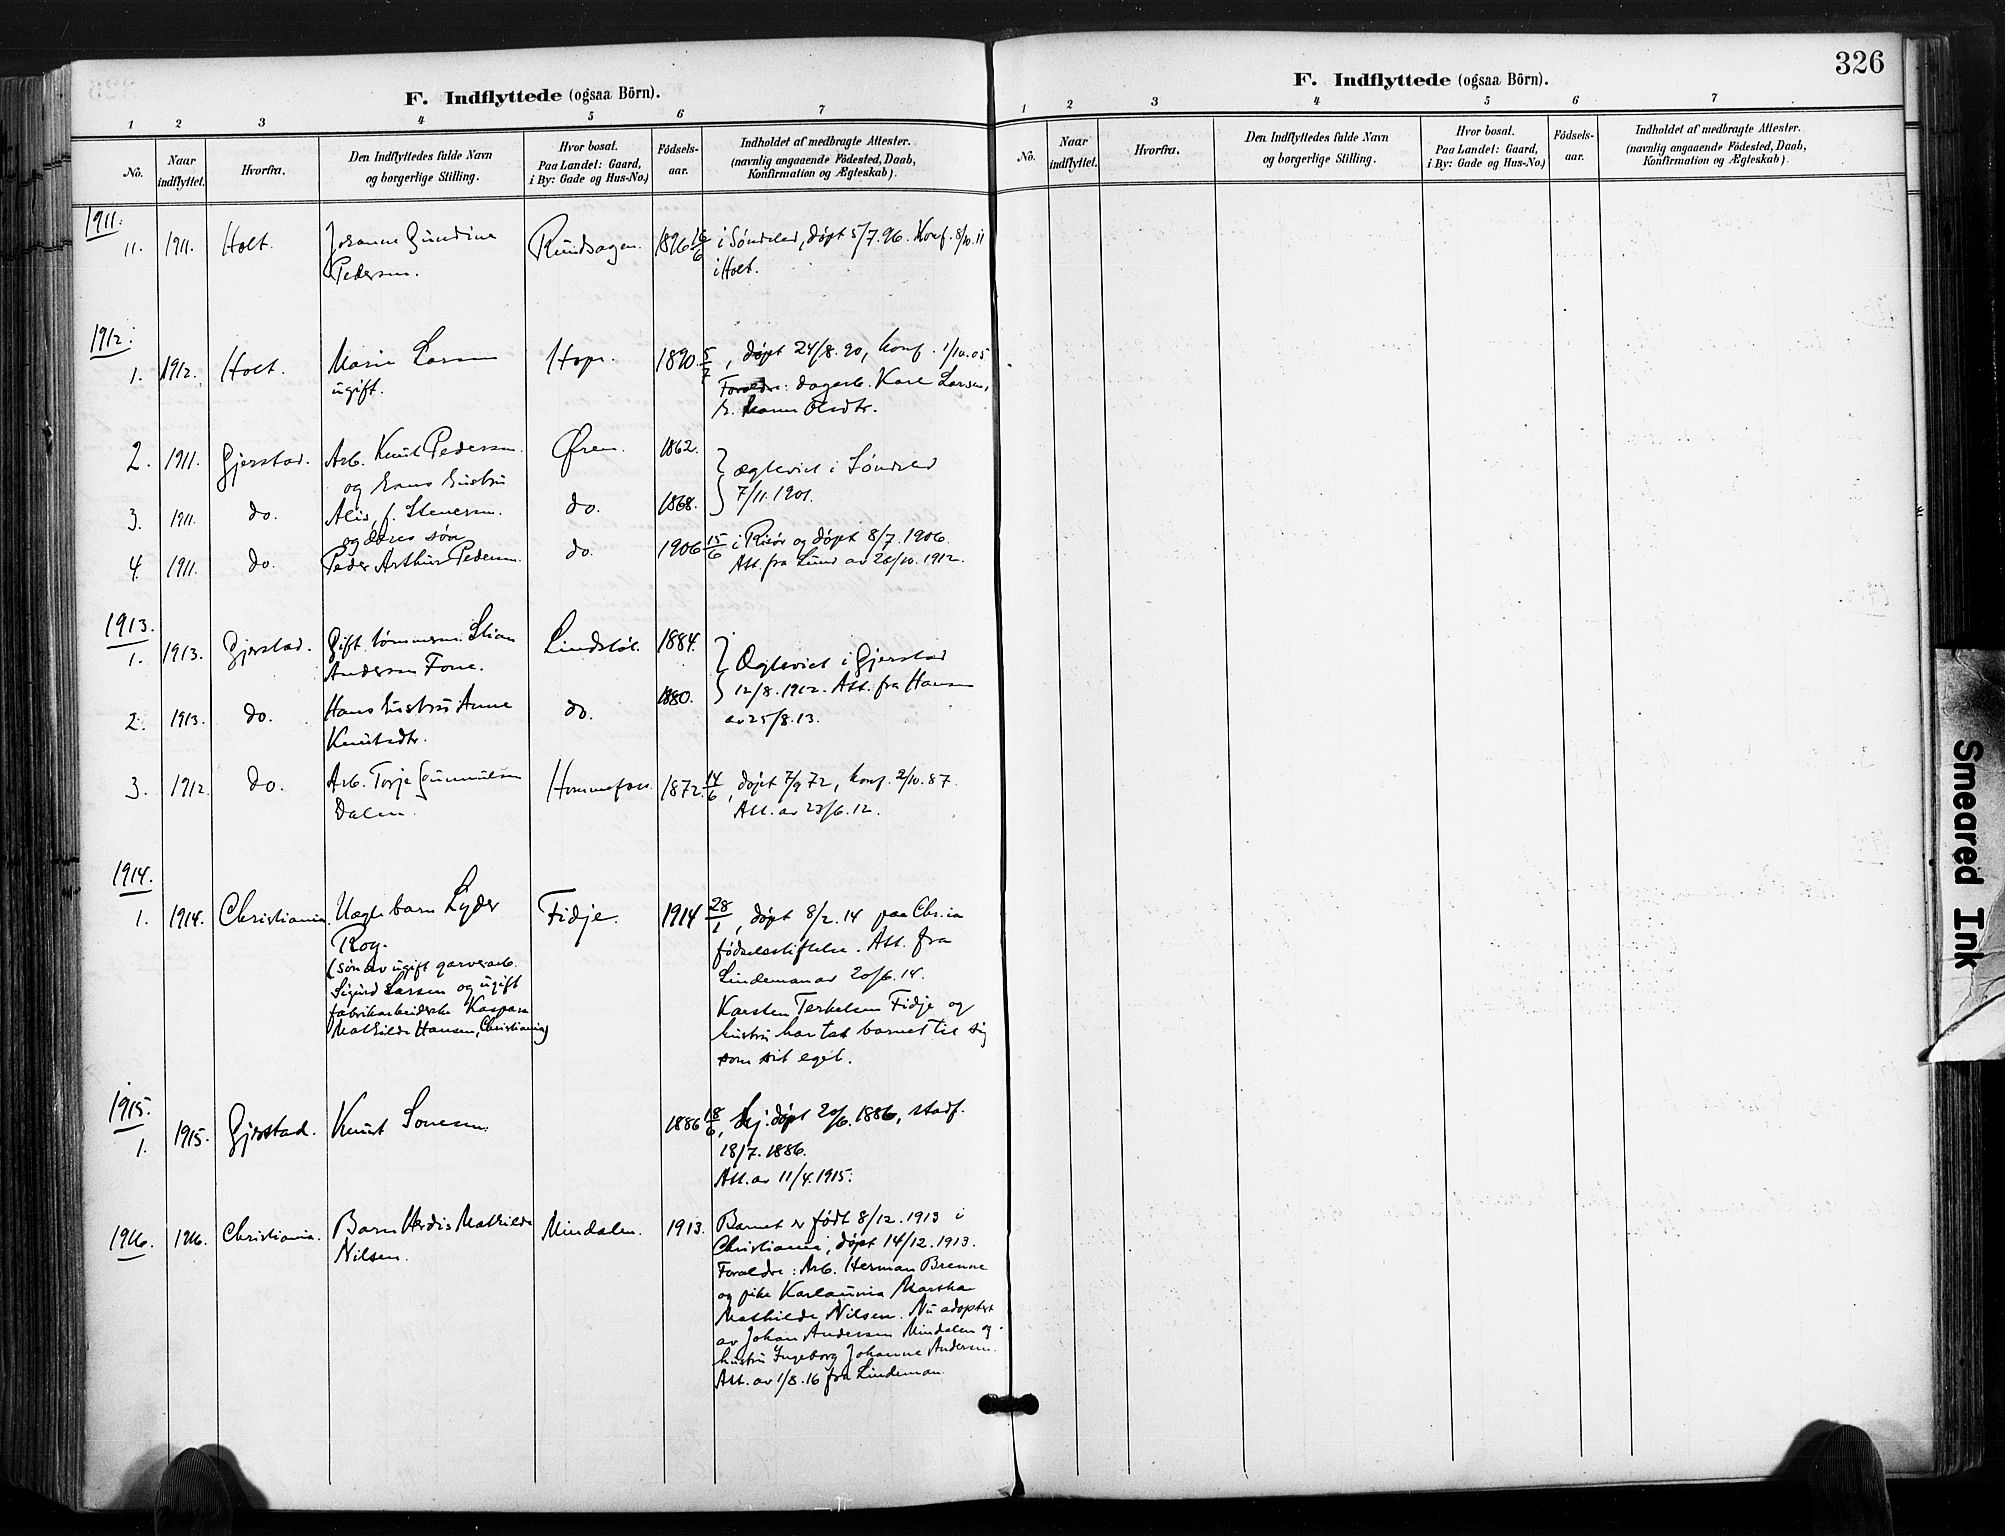 326
F. Indflyttede (ogsaa Börn).
1 2 3 4 5 6 7
No. Naar indflyttet. Hvorfra. Den Indflyttedes fulde Navn og borgerlige Stilling. Hvor bosat. Paa Landet: Gaard, i By: Gade og Hus-No.) Födsels-aar. Indholdet af medbragte Attester. (navnlig angaaende Födested, Daab, Konfirmation og Ægteskab).
1911.
11. 1911. Holt. Johanne Gundine 1896 16/6 i Søndeled, døpt 5/7.96. Konf. 8/10.11
Pedersen. i Holt.
1912.
1. 1912. Holt. Marie Larsen Hope. 1890. 5/7, døpt 24/8.90, konf. 1/10.05
ugift. Forældre: dagarb. Karl Larsen,
Olsdtr.
2. 1911. Gjerstad. Arb. Knut Pedersen Øren. 1862. ægteviet i Søndeled
og hans hustru 7/11.1901.
3. 1911. do. f. Stenersen. do. 1868.
og deres søn
4. 1911. do. Peder Arthur Pedersen. do. 1906 15/6 i Risør og døpt 8/7.1906.
Att. fra Lund av 28/10.1912.
1913.
1. 1913. Gjerstad. Gift tømmerm. Stian Lindstøl. 1884. Ægteviet i Gjerstad
Andersen 12/8.1912. Att. fra Hansen
av 25/8.13.
2. 1913. do. Hans hustru Anne do. 1880.
Knutsdtr.
3. 1912. do. Arb. Torje Gunnulsen Hommefoss. 1872. 14/6, døpt 7/9 72, konf. 2/10.87.
Dalen. Att. av 23/6.12.
1914.
1. 1914. Christiania. Uægte barn Lyder Fidje. 1914 28/1, døpt 8/2.14 paa Chr.ia
Roy. fødselsstiftelse. Att. fra
(søn av ugift garverarb. Lindeman av 20/6.14.
Sigurd Larsen og ugift Karsten Terkelsen Fidje og
fabrikarbeiderske Kaspara hustru har tat barnet til sig
Mathilde Hansen, Christiania) som sit eget.
1915.
1. 1915. Gjerstad. Knut 1886 18/6, hj. døpt 20/6.1886, stadf.
18/7.1886.
Att. av 11/4.1915.
1916. 1916. Christiania. Barn Herdis Mathilde Mindalen. 1913. Barnet er født 8/12.1913 i
Nilsen. Christiania, døpt 14/12.1913.
Forældre: Arb. Herman Brenne
og pike Karlaunia Martha
Mathilde Nilsen. Nu adoptert
av Johan Andersen Mindalen og
hustru Ingeborg Johanne Andersen.
Att. av 1/8.16 fra Lindeman.
F. Indflyttede (ogsaa Börn).
1 2 3 4 5 6 7
No. Naar indflyttet. Hvorfra. Den Indflyttedes fulde Navn og borgerlige Stilling. Hvor bosat. Paa Landet: Gaard, i By: Gade og Hus-No.) Födsels-aar. Indholdet af medbragte Attester. (navnlig angaaende Födested, Daab, Konfirmation og Ægteskab).
Smeared Ink